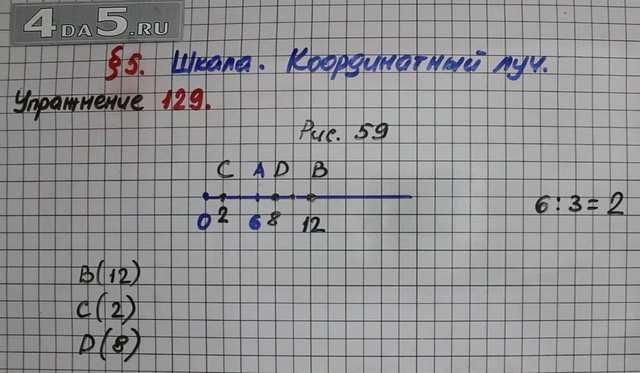 4DA5.RU
§5. Шкала. Координатный луч.
Упражнение 129.
Рис. 59
C A D B
0 2 6 8 12
6:3=2
B(12)
C(2)
D(8)